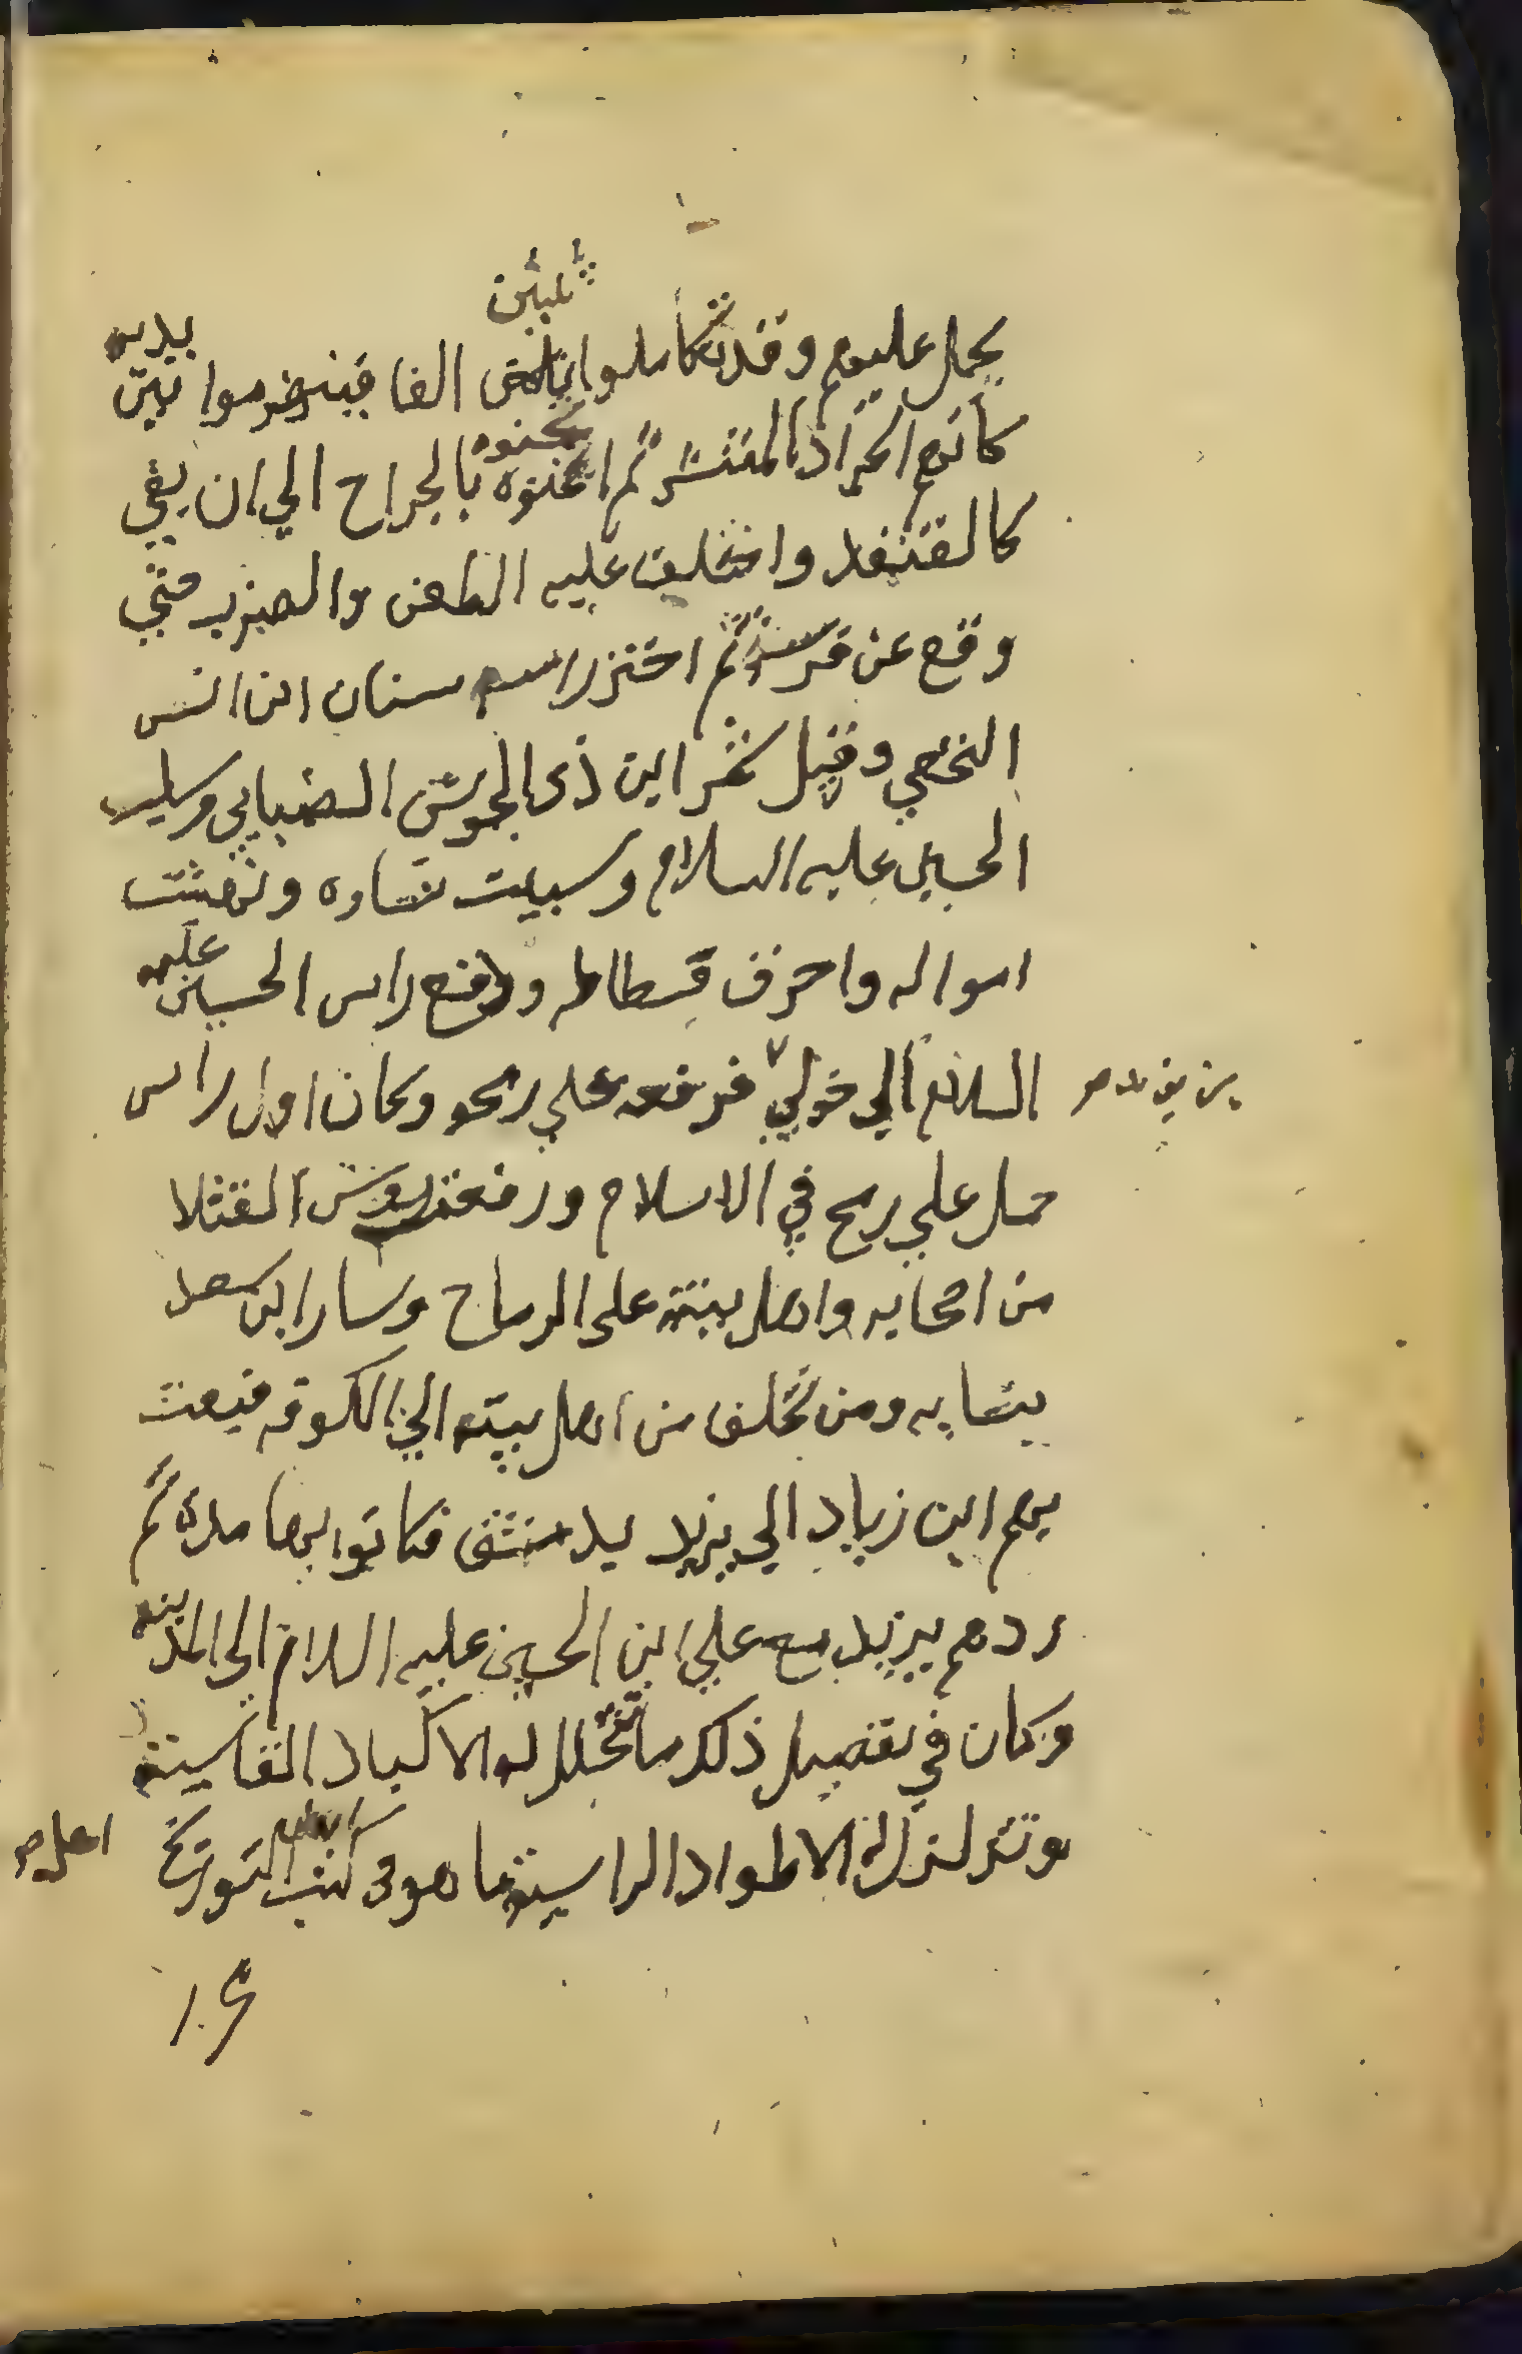 ثلثين
يحمل عليهم وقد تكاملوا الفا فينهزموا بين يديه
كانهم الجراد المنتشر ثم اثخنوه بالجراح الي ان بقي
كالقنفد واختلف عليه الطعن والضرب حتي
وقع عن فرسه ثم احتز راسه سنان ابن انس
النخعي وقيل شمر ابن ذي الجوشن الضبابي وسلب
الحسين عليه السلام وسبيت نساوه ونهبت
امواله واحرق فسطاطه ودفع راس الحسين عليه
السلام الي خولي فرفعه علي رمحه وكان اول راس
بن يزيد صح
حمل علي رمح في الاسلام ورفعت روس القتلا
من اصحابه واهل بيته على الرماح وسار ابن سعد
بنسايه ومن تخلف من اهل بيته الي الكوفه فبعث
بهم ابن زياد الي يزيد بدمشق فكانوا بها مدة ثم
ردهم يزيد مع علي ابن الحسين عليه السلام الى المدينه
وكان في تفصيل ذلك ما تتخلل له الاكباد القاسية
وتتزلزل له الاطواد الراسية ما هو في كتب التوريخ
اهل صح